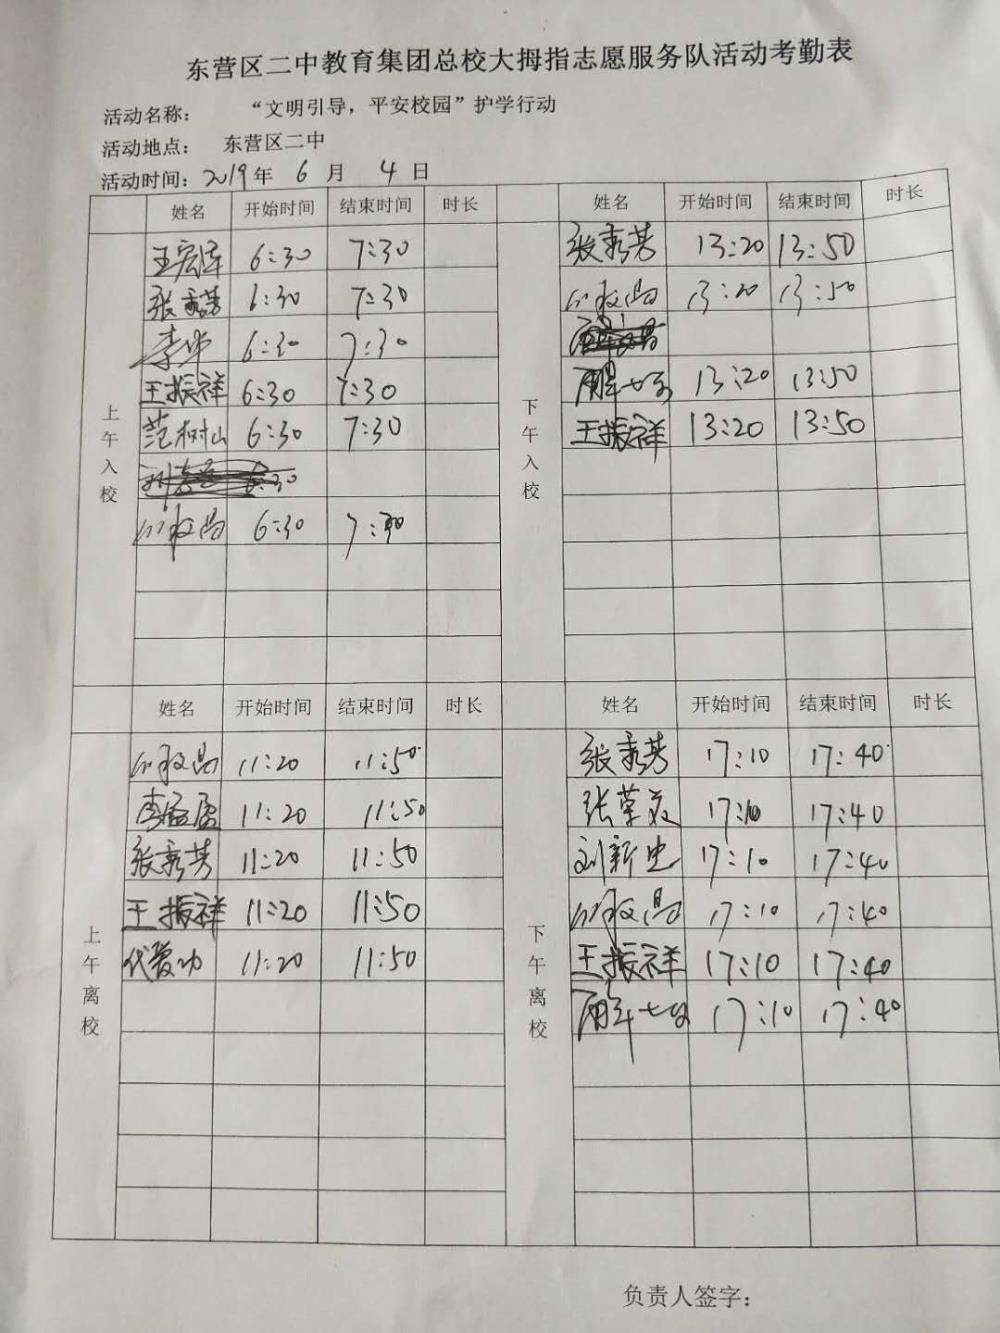 东营区二中教育集团总校大拇指志愿服务队活动考勤表
活动名称： “文明引导，平安校园”护学行动
活动地点： 东营区二中
活动时间：2019年 6 月 4 日
上午入校
姓名 开始时间 结束时间 时长
王宏泽 6:30 7:30
张秀芳 6:30 7:30
李华 6:30 7:30
王振祥 6:30 7:30
范树山 6:30 7:30
6:30
6:30 7:30
下午入校
姓名 开始时间 结束时间 时长
张秀芳 13:20 13:50
13:20 13:50
13:20 13:50
王振祥 13:20 13:50
上午离校
姓名 开始时间 结束时间 时长
11:20 11:50
李孟盈 11:20 11:50
张秀芳 11:20 11:50
王振祥 11:20 11:50
代爱功 11:20 11:50
下午离校
姓名 开始时间 结束时间 时长
张秀芳 17:10 17:40
张荣友 17:10 17:40
刘新忠 17:10 17:40
17:10 17:40
王振祥 17:10 17:40
17:10 17:40
负责人签字：